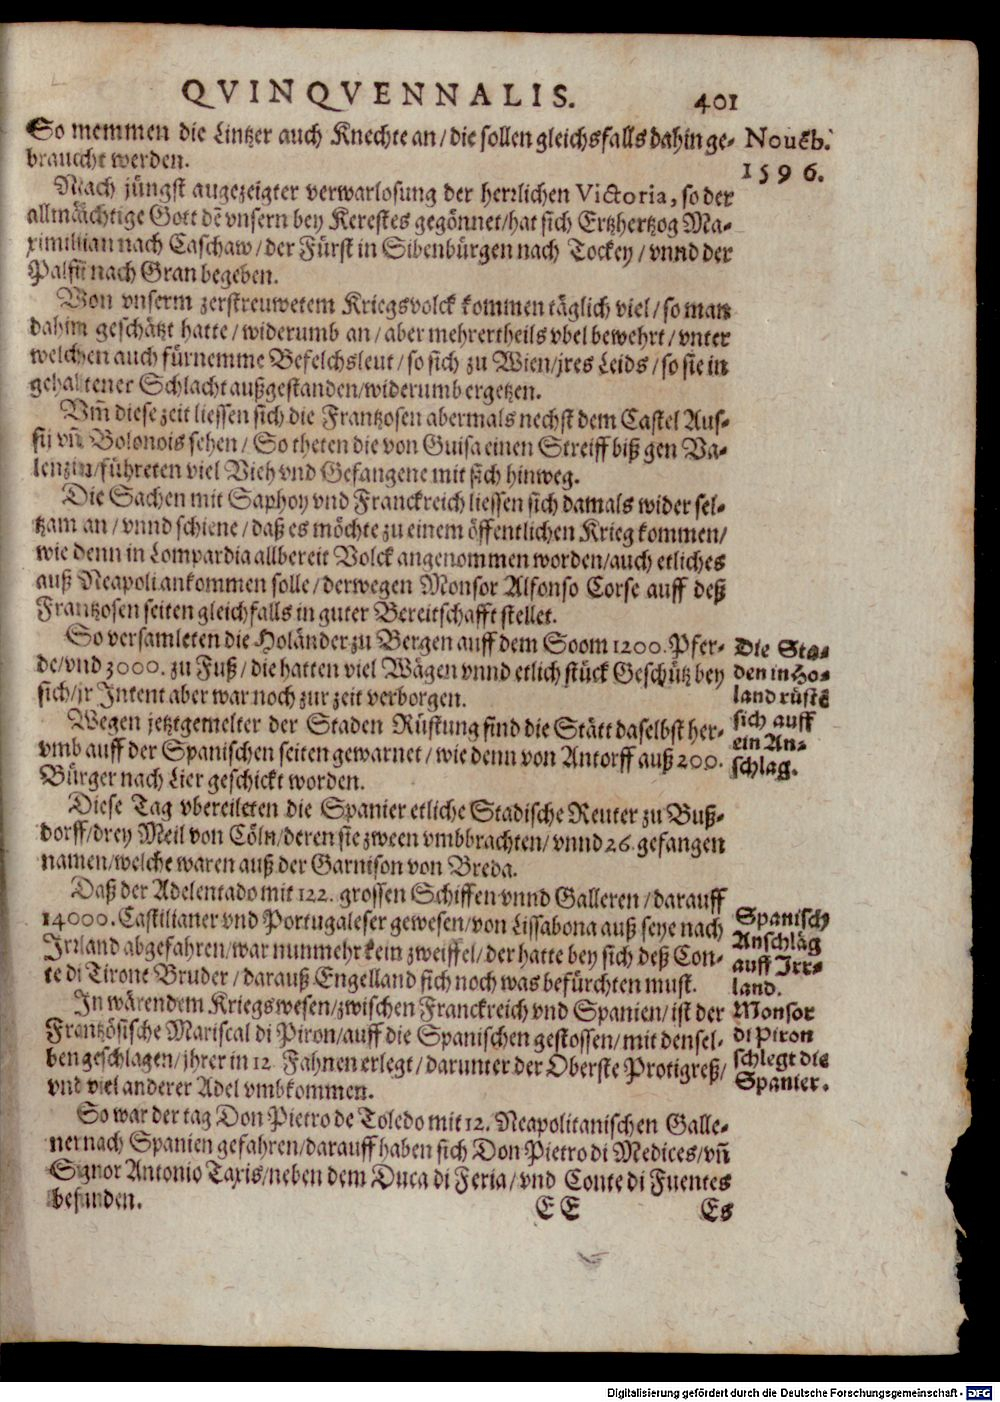 QVINQVENNALIS. 401
So memmen die Lintzer auch Knechte an/ die sollen gleichsfalls dahin ge-
braucht werden.
Nach jüngst angezeigter verwarlosung der herrlichen Victoria, so der
allmächtige Gott dē vnsern bey Kerestes gegönnet/ hat sich Ertzhertzog Ma-
ximilian nach Caschaw/ der Fürst in Sibenbürgen nach Tockey/ vnnd der
Palfii nach Gran begeben.
Von vnserm zerstreuwetem Kriegsvolck kommen täglich viel/ so man
dahin geschätzt hatte/ widerumb an/ aber mehrertheils vbel bewehrt/ vnter
welchen auch fürnemme Befelchsleut/ so sich zu Wien/ jres Leids/ so sie in
gehaltener Schlacht außgestanden/ widerumb ergetzen.
Vm̄ diese zeit liessen sich die Frantzosen abermals nechst dem Castel Aus-
sii vn̄ Bolonois sehen/ So theten die von Guisa einen Streiff biß gen Va-
lenzin/ führeten viel Vieh vnd Gefangene mit sich hinweg.
Die Sachen mit Saphoy vnd Franckreich liessen sich damals wider sel-
tzam an/ vnnd schiene/ daß es möchte zu einem öffentlichen Krieg kommen/
wie denn in Lompardia allbereit Volck angenommen worden/ auch etliches
auß Neapoli ankommen solle/ derwegen Monsor Alfonso Corse auff deß
Frantzosen seiten gleichfalls in guter Bereitschafft stellet.
So versamleten die Holänder zu Bergen auff dem Soom 1200. Pfer-
de/ vnd 3000. zu Fuß/ die hatten viel Wägen vnnd etlich stück Geschütz bey
sich/ jr Intent aber war noch zur zeit verborgen.
Wegen jetztgemelter der Staden Rüstung sind die Stätt daselbst her-
vmb auff der Spanischen seiten gewarnet/ wie denn von Antorff auß 200.
Bürger nach Lier geschickt worden.
Diese Tag vbereileten die Spanier etliche Stadische Reuter zu Buß-
dorff/ drey Meil von Cöln/ deren sie zween vmbbrachten/ vnnd 26. gefangen
namen/ welche waren auß der Garnison von Breda.
Daß der Adelentado mit 122. grossen Schiffen vnnd Galleren/ darauff
14000. Castilianer vnd Portugaleser gewesen/ von Lissabona auß seye nach
Irrland abgefahren/ war nunmehr kein zweiffel/ der hatte bey sich deß Con-
te di Tirone Bruder/ darauß Engelland sich noch was befürchten must.
In wärendem Kriegswesen/ zwischen Franckreich vnd Spanien/ ist der
Frantzösische Mariscal di Piron/ auff die Spanischen gestossen/ mit densel-
ben geschlagen/ jhrer in 12. Fahnen erlegt/ darunter der Oberste Protigreß/
vnd viel anderer Adel vmbkommen.
So war der tag Don Pietro de Toledo mit 12. Neapolitanischen Galle-
nei nach Spanien gefahren/ darauff haben sich Don Pietro di Medices/ vn̄
Signor Antonio Taxis/ neben dem Duca di Feria/ vnd Conte di Fuentes
befunden.
EE Es
Nouēb.
1596.
Die Sta-
den in Ho-
land rüstē
sich auff
ein An-
schlag.
Spanisch
Anschläg
auff Irr-
land.
Monsor
di Piron
schlegt die
Spanier.
Digitalisierung gefördert durch die Deutsche Forschungsgemeinschaft - DFG